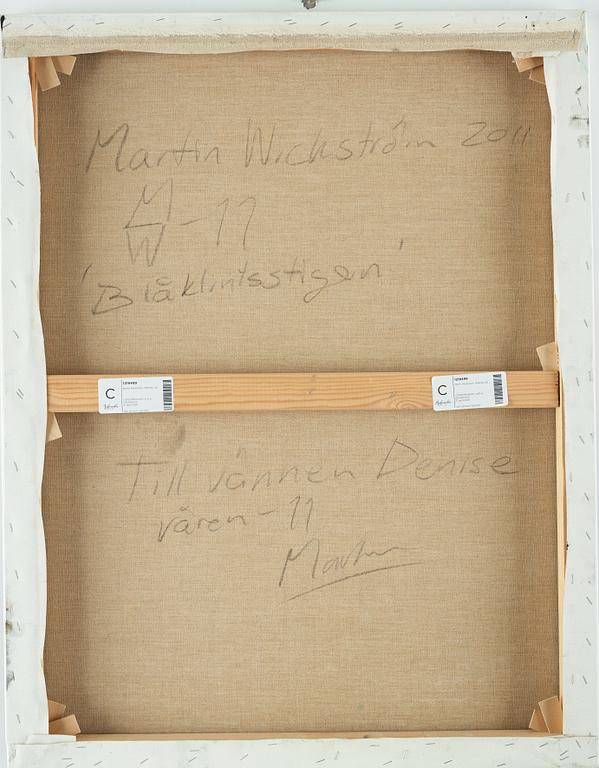 Martin Wickström 2011
M
W -11
'Blåklintsstigen'
C
C
Till vännen Denise
våren -11
Martin